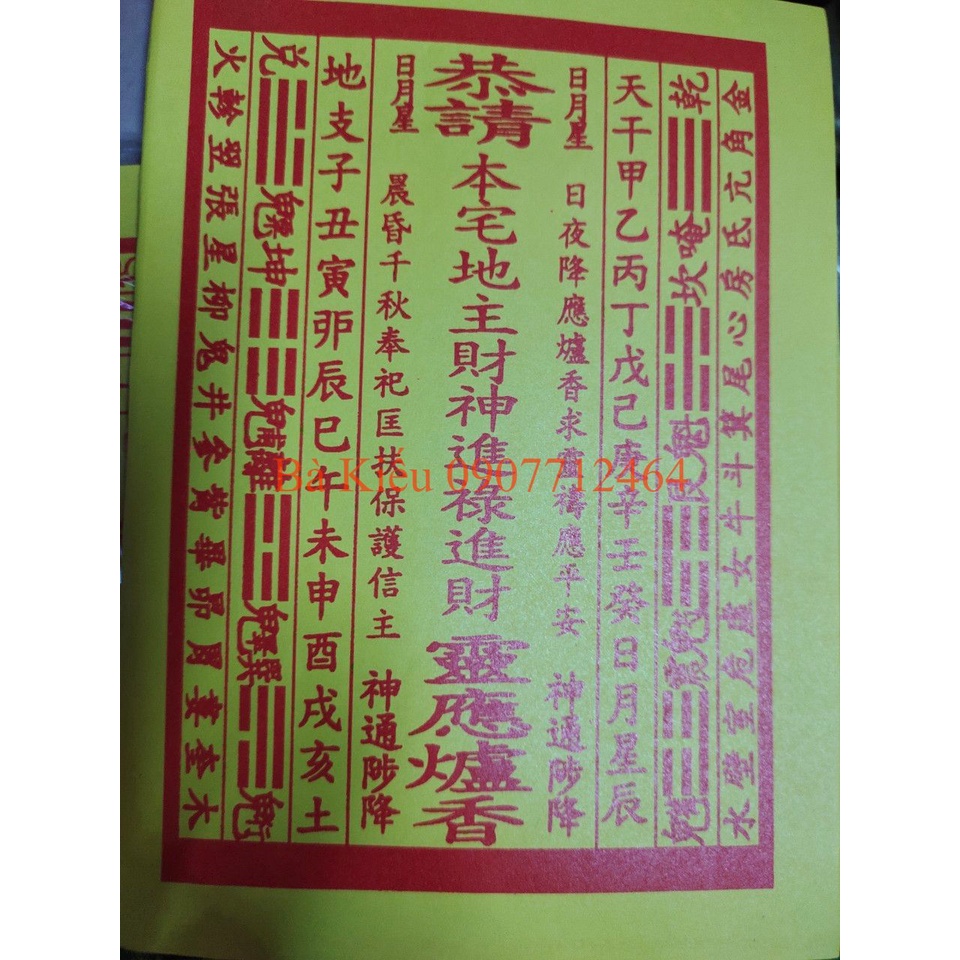 金角亢氐房心尾箕斗牛女虛危室壁水
乾 ☰ 唵坎 ☵ 魁艮 ☶ 震 ☳
天干甲乙丙丁戊己庚辛壬癸日月星辰
日月星 日夜降應爐香求齋禱應平安 神通陟降
恭請本宅地主財神進祿進財靈應爐香
日月星 晨昏千秋奉祀匡扶保護信主 神通陟降
地支子丑寅卯辰巳午未申酉戌亥土
兌 ☱ 坤 ☷ 離 ☲ 巽 ☴
火軫翌張星柳鬼井參觜畢昴胃婁奎木
Bà Kiều 0907712464